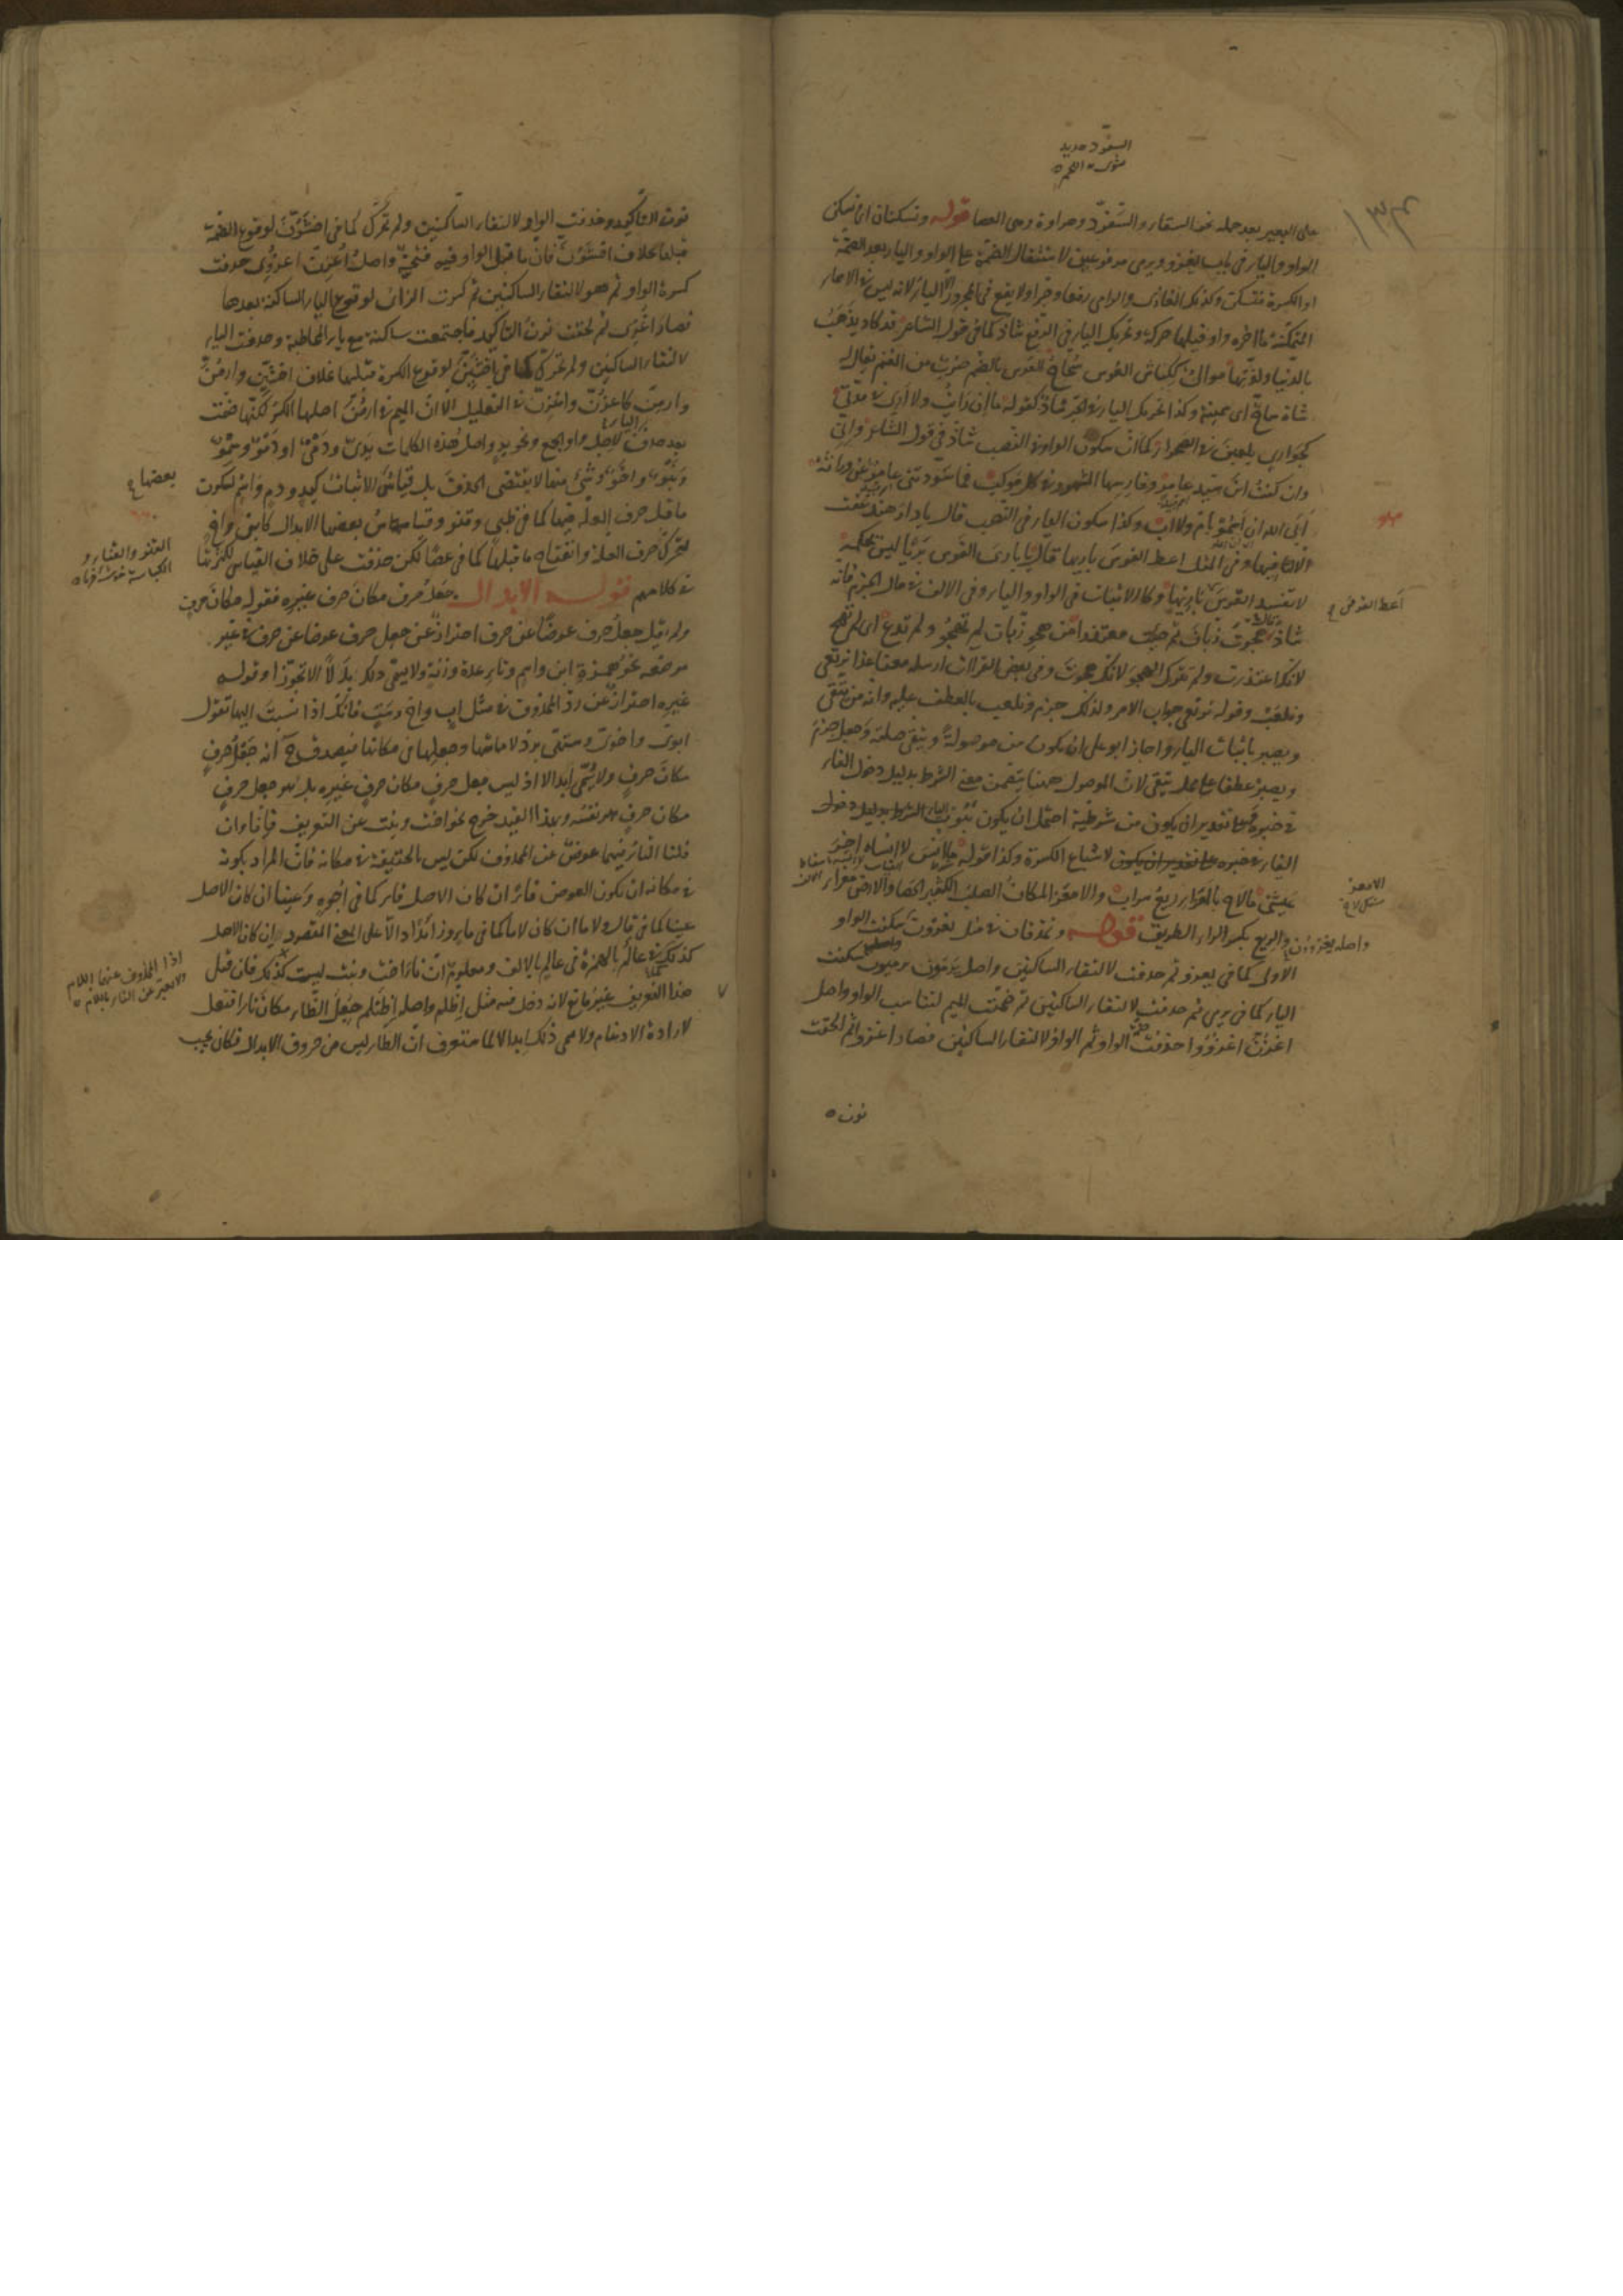 السفود حديد
على البعير بعد حمله نحو السقاء والسفود وهراوة وهى العصا قوله وتسكنان اى تسكن
الواو والياء فى باب يغزو ويرمى مرفوعين لاستثقال الضمة على الواو والياء بعد الضمة
او الكسرة فتسكن وكذلك الغازى والرامى رفعا وجرا ولا يقع فى المجرور الا الياء لانه ليس فى الاسماء
المتمكنة ما اخره واو قبلها حركة وتحريك الياء فى الرفع شاذ كما فى قول الشاعر قد كاد يذهب
بالدنيا ولذتها موالى ككباش العوس سحاح العوس بالضم ضرب من الغنم يقال
شاة ساح اى سمينة وكذا تحريك الياء فى الجر شاذ كقوله ما ان رأيت ولا ارى فى مدتى
كجوارى يلعبن فى الصحراء كما ان سكون الواو فى النصب شاذ فى قول الشاعر وانى
وان كنت ابن سيد عامر وفارسها المشهور فى كل موكب فما سودتنى عامر عن وراثة
ابى الله ان اسمو بام ولا اب وكذا سكون الياء فى النصب قال يا دار هند عفت
الا اثافيها وفى المثل اعط القوس باريها قال يا بارى القوس بريا ليس تحكمه
لا تفسد القوس اعط القوس باريها وكالاثبات فى الواو والياء وفى الالف فى حال الجزم فانه
شاذ هجوت زبان ثم جئت معتذرا من هجو زبان لم تهجو ولم تدع اى لم تهج
لانك اعتذرت ولم تترك الهجو لانك هجوت وفى بعض القراآت ارسله معنا غدا نرتعى
ونلعب وقوله نرتعى جواب الامر ولذلك جزم ونلعب بالعطف عليه وانه من يتقى
ويصبر باثبات الياء واجاز ابو على ان يكون من موصولة ويتقى صلته وجعل جزم
ويصبر عطفا على محل يتقى لان الموصول ههنا يتضمن معنى الشرط بدليل دخول الفاء
فى خبره تقدير ان يكون من شرطية احتمل ان يكون ثبوت الياء
لاشباع الكسرة وكذا قوله ما انس لا انساه اخر
عيشتى ما لاح بالمعزاء ريع سراب والامعز المكان الصلب الكثير الحصا والارض معزاء
والريع بكسر الراء الطريق قوله وتحذفان فى مثل يغزون سكنت الواو
الاولى كما فى يغزو ثم حذفت لالتقاء الساكنين واصل يرمون يرميون سكنت
الياء كما فى يرمى ثم حذفت لالتقاء الساكنين ثم ضمت الميم لتناسب الواو واصل
اغزن اغزووا حذفت ضمة الواو ثم الواو لالتقاء الساكنين فصار اغزوا ثم الحقت
نون
اعط القوس
الامعز
واصله يغزوون
نون التاكيد وحذفت الواو لالتقاء الساكنين ولم تحرك كما فى اخشون لوقوع الضمة
قبلها بخلاف اخشون فان ما قبل الواو فيه فتحة واصل اغزن اغزوى حذفت
كسرة الواو ثم هو لالتقاء الساكنين ثم كسرت الزاى لوقوع الياء الساكنة بعدها
فصار اغزى ثم لحقت نون التاكيد فاجتمعت ساكنة مع ياء المخاطبة وحذفت الياء
لالتقاء الساكنين ولم تحرك كما فى اخشين لوقوع الكسرة قبلها بخلاف اخشين وارمن
وارمن كاغزن واغزن فى التعليل الا ان الميم فى ارمن اصلها الكسر لكنها ضمت
بعد حذف الياء لاجل واو الجمع ونحو يد واصل هذه الكلمات يدى ودمى او دمو وسمو
وبنو واخو وشئ منها لا يقتضى الحذف بل قياس الاثبات كيد ودم واسم لسكون
ما قبل حرف العلة فيها كما فى ظبى وقنو وقياس بعضها الابدال كابن واخ
لتحرك حرف العلة وانفتاح ما قبلها كما فى عصا لكن حذفت على خلاف القياس لكثرتها
فى كلامهم قوله الابدال جعل حرف مكان حرف غيره فقوله مكان حرف
ولم يقل جعل حرف عوضا عن حرف احتراز عن جعل حرف عوضا عن حرف فى غير
موضعه نحو همزة ابن واسم وتاء عدة وزنة ولا يسمى ذلك بدلا الا تجوزا وقوله
غيره احتراز عن رد المحذوف فى مثل اب واخ وست فانك اذا نسبت اليها تقول
ابوى واخوى وستهى برد لاماتها وجعلها فى مكانها فيصدق ح انه جعل حرف
مكان حرف ولا يسمى ابدالا اذ ليس جعل حرف مكان حرف غيره بل هو جعل حرف
مكان حرف هو نفسه وبهذا القيد خرج نحو اخت وبنت عن التعريف فانا وان
قلنا التاء فيهما عوض عن المحذوف لكن ليس بالحقيقة فى مكانه فان المراد بكونه
فى مكانه ان يكون العوض فاء ان كان الاصل فاء كما فى اجوه وعينا ان كان الاصل
عينا كما فى قال ولاما ان كان لاما كما فى ماء وزائدا دالا على المعنى المقصود ان كان الاصل
كذلك فى عالم بالهمزة فى عالم بالالف ومعلوم ان تاء اخت وبنت ليست كذلك فان قيل
هذا التعريف غير مانع لانه دخل فيه مثل اظلم واصله اظتلم جعل الظاء مكان تاء افتعل
لارادة الادغام ولا يسمى ذلك ابدالا لما ستعرف ان الظاء ليس من حروف الابدال فكان يجب
بعضها
القنو والقثاء و
اذا المحذوف منهما اللام